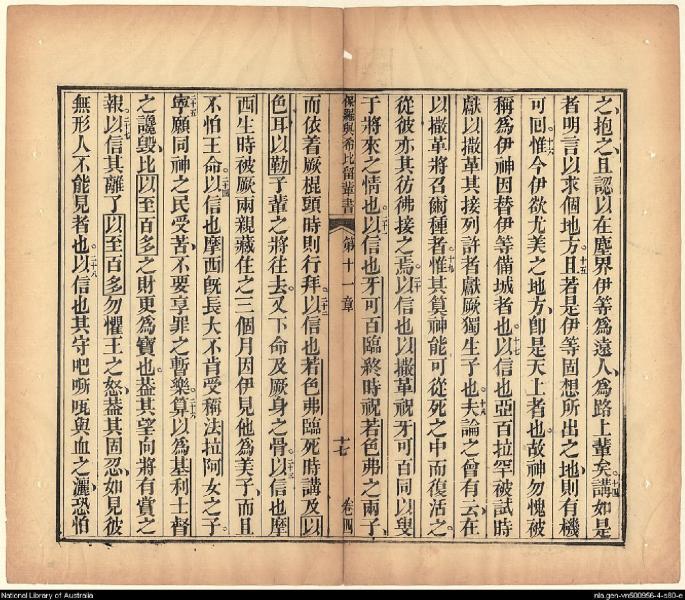 之抱之且認以在塵界伊等為遠人為路上輩矣十四講如是
者明言以求個地方十五且若是伊等固想所出之地則有機
可回十六惟今伊欲尤美之地方卽是天上者也故神勿愧被
稱為伊神因替伊等備城者也十七以信也亞百拉罕被試時
獻以撒革其接列許者獻厥獨生子也十八夫論之曾有云在
以撒革將召爾種者十九惟其算神能可從死之中而復活之
從彼亦其彷彿接之焉二十以信也以撒革祝牙可百同以叟
于將來之情也二十一以信也牙可百臨終時祝若色弗之兩子
保羅與希比留輩書 第十一章 十七 卷四
而依着厥棍頭時則行拜二十二以信也若色弗臨死時講及以
色耳以勒子輩之將往去又下命及厥身之骨二十三以信也摩
西生時被厥兩親藏住之三個月因伊見他為美子而且
不怕王命二十四以信也摩西旣長大不肯受稱法拉阿女之子
二十五寧願同神之民受苦不要享罪之暫樂二十六算以為基利士督
之讒毀比以至百多之財更為寶也葢其望向將有賞之
報二十七以信其離了以至百多勿懼王之怒葢其固忍如見彼
無形人不能見者也二十八以信也其守吧㗭㕶與血之灑恐怕
National Library of Australia
nla.gen-vn500956-4-s80-e